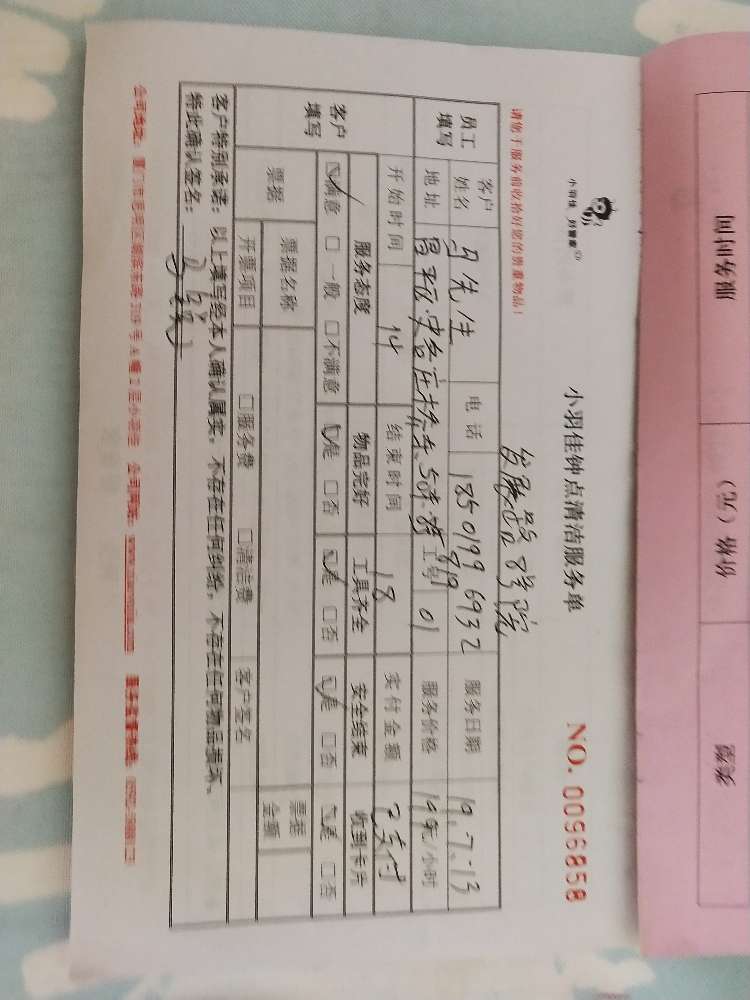 小羽佳 好管家
小羽佳钟点清洁服务单
NO. 0096858
请您于服务前收拾好您的贵重物品！
发展路8号院
员工填写
客户姓名 马先生 电话 18501996932 服务日期 19.7.13
地址 昌平区 工号 01 服务价格 19元/小时
开始时间 14 结束时间 18 实付金额 已支付
客户填写
服务态度 物品完好 工具齐全 安全结束 收到卡片
☑满意 □一般 □不满意 ☑是 □否 ☑是 □否 ☑是 □否 ☑是 □否
票据 票据名称 票据金额
开票项目 □服务费 □清洁费 客户签名
客户特别承诺：以上填写经本人确认属实，不存在任何纠纷，不存在任何物品损坏。
特此确认签名：
公司地址： 公司网址：
服务时间 价格（元） 类型